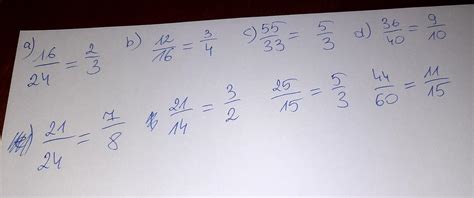 a) 16/24 = 2/3 b) 12/16 = 3/4 c) 55/33 5/3 d) 36/40 = 9/10
21/24 = 7/8 21/14 = 3/2 25/15 = 5/3 44/60 = 11/15